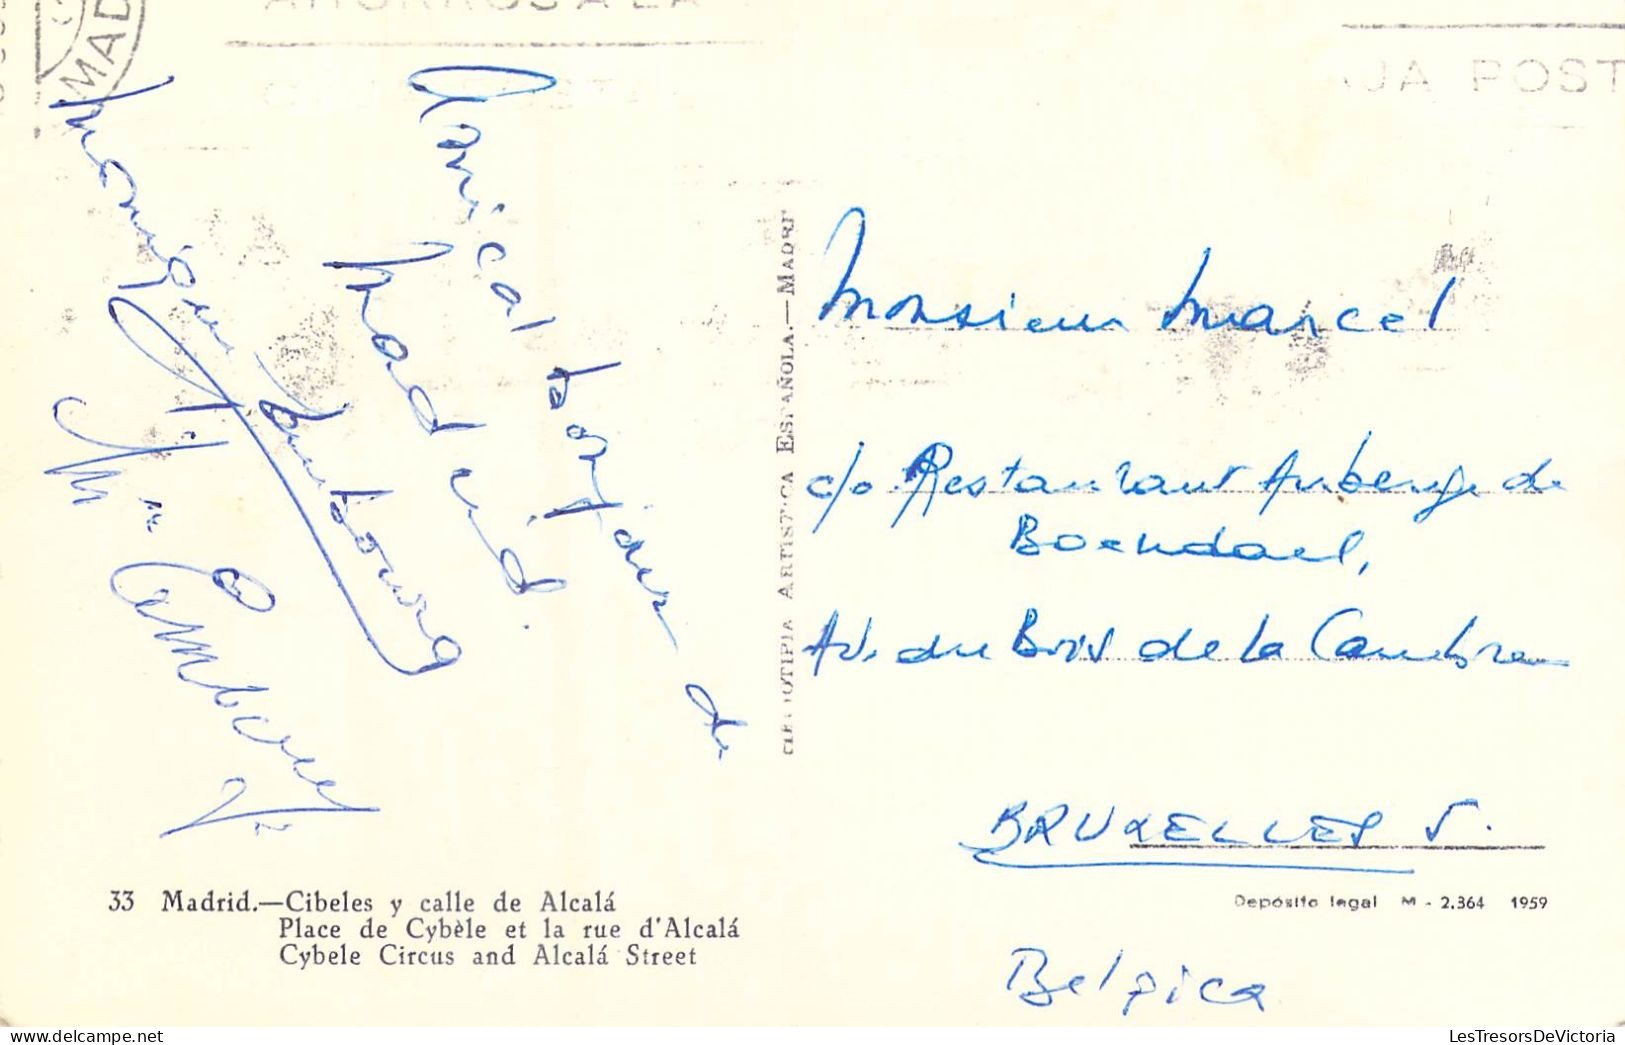 AHORROS A LA
MAD
JA POST
Amical bonjour de
Madrid.
Monique
Monsieur Marcel
c/o Restaurant Auberge de
Boendael,
Av. du Bois de la Cambre
BRUXELLES 5.
Belgica
ARTISTICA ESPAÑOLA.—MADRI
33 Madrid.—Cibeles y calle de Alcalá
Place de Cybèle et la rue d'Alcalá
Cybele Circus and Alcalá Street
Depósito legal M - 2.364 1959
LesTresorsDeVictoria